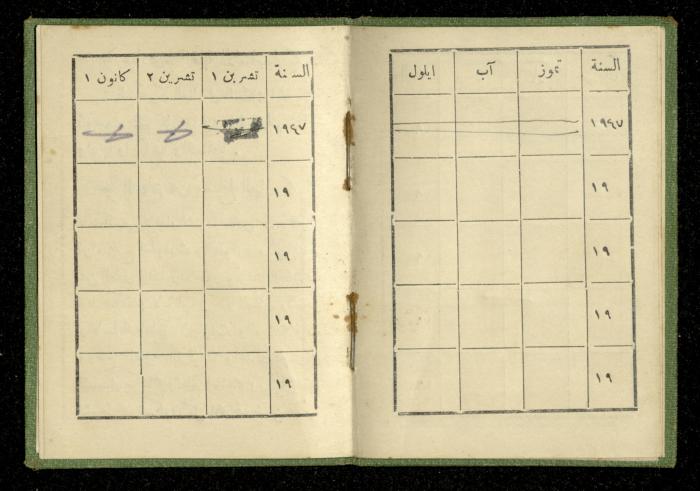 السنة تموز آب ايلول
١٩٤٧
١٩
١٩
١٩
١٩
السنة تشرين ١ تشرين ٢ كانون ١
١٩٤٧
١٩
١٩
١٩
١٩